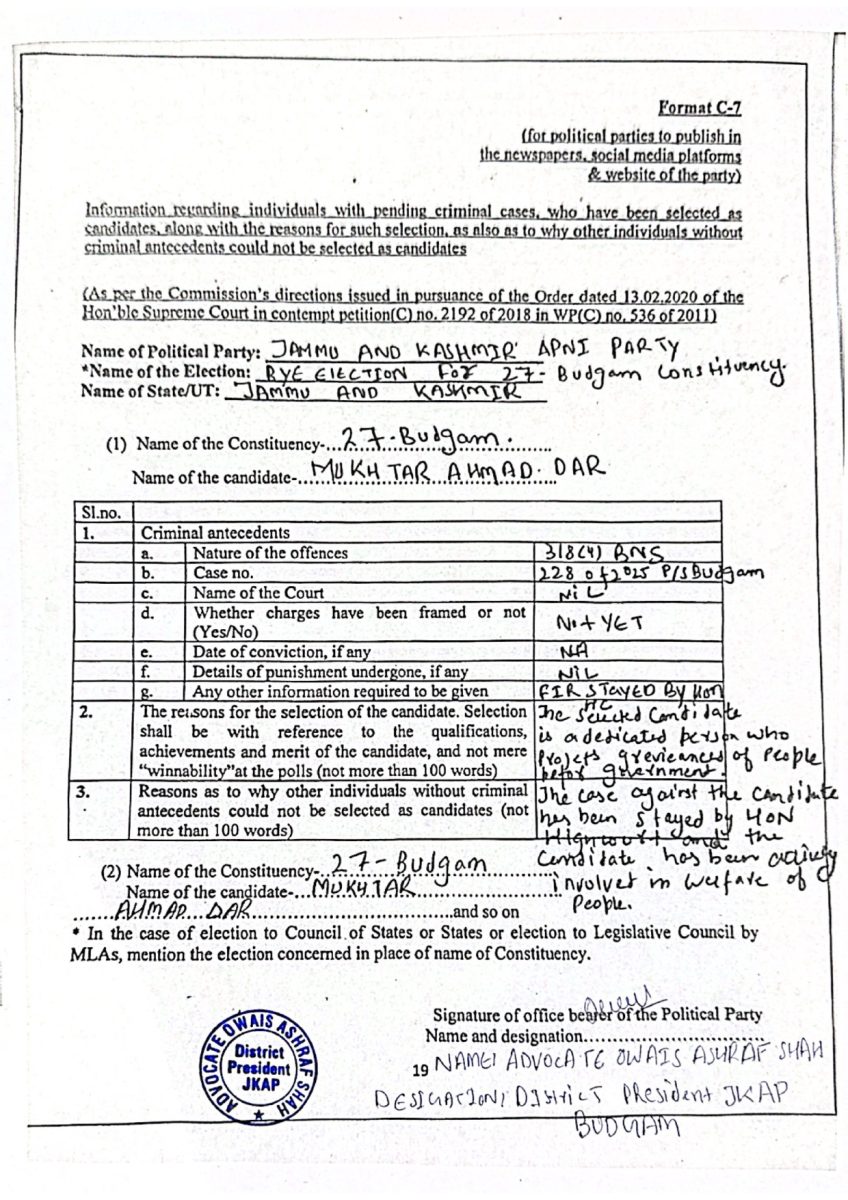 Format C-7
(for political parties to publish in
the newspapers, social media platforms
& website of the party)
Information regarding individuals with pending criminal cases, who have been selected as
candidates, along with the reasons for such selection, as also as to why other individuals without
criminal antecedents could not be selected as candidates
(As per the Commission's directions issued in pursuance of the Order dated 13.02.2020 of the
Hon'ble Supreme Court in contempt petition(C) no. 2192 of 2018 in WP(C) no. 536 of 2011)
Name of Political Party: JAMMU AND KASHMIR APNI PARTY
*Name of the Election: BYE ElECTION FoR 27- Budgam Constituency.
Name of State/UT: JAMMU AND KASHMIR
(1) Name of the Constituency-...27-Budgam.
Name of the candidate-...MUKHTAR AHMAD. DAR
Sl.no.
1. Criminal antecedents
a. Nature of the offences 318(4) BNS
b. Case no. 228 of 2025 P/S Budgam
c. Name of the Court NiL
d. Whether charges have been framed or not
(Yes/No) Not YET
e. Date of conviction, if any NA
f. Details of punishment undergone, if any NiL
g. Any other information required to be given FIR STAYED BY HON
HC
2. The reasons for the selection of the candidate. Selection The selected Candidate
shall be with reference to the qualifications, is a dedicated person who
achievements and merit of the candidate, and not mere Projets grevieances of People
"winnability"at the polls (not more than 100 words) befor government.
3. Reasons as to why other individuals without criminal The case against the candidate
antecedents could not be selected as candidates (not has been stayed by HON
more than 100 words) Highcourt and the
Candidate has been activey
involvet in welfare of
People.
(2) Name of the Constituency-...27-Budgam
Name of the candidate-...MUKHTAR
AHMAD DAR and so on
* In the case of election to Council of States or States or election to Legislative Council by
MLAs, mention the election concerned in place of name of Constituency.
Signature of office bearer of the Political Party
Name and designation
19 NAME/ ADVOCATE OWAIS ASHRAF SHAH
DESIGATION/ DIStRICT President JKAP
BUDGAM
ADVOCATE OWAIS ASHRAF SHAH
District
President
JKAP